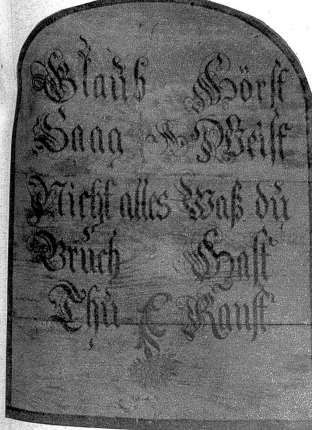 Glaub Hörst
Saag Weist
Nicht alles Waß dü
Brüch Hast
Thü Kanst